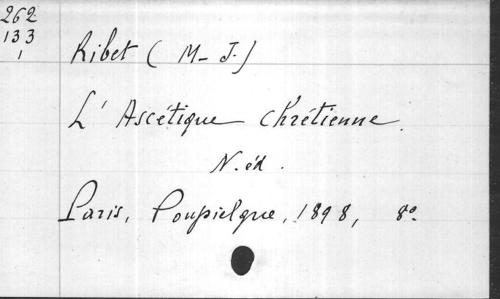 262
133
1
Ribet (M-J.)
L'Ascétique chrétienne.
N. éd.
Paris, Poupielgue, 1898, 8º